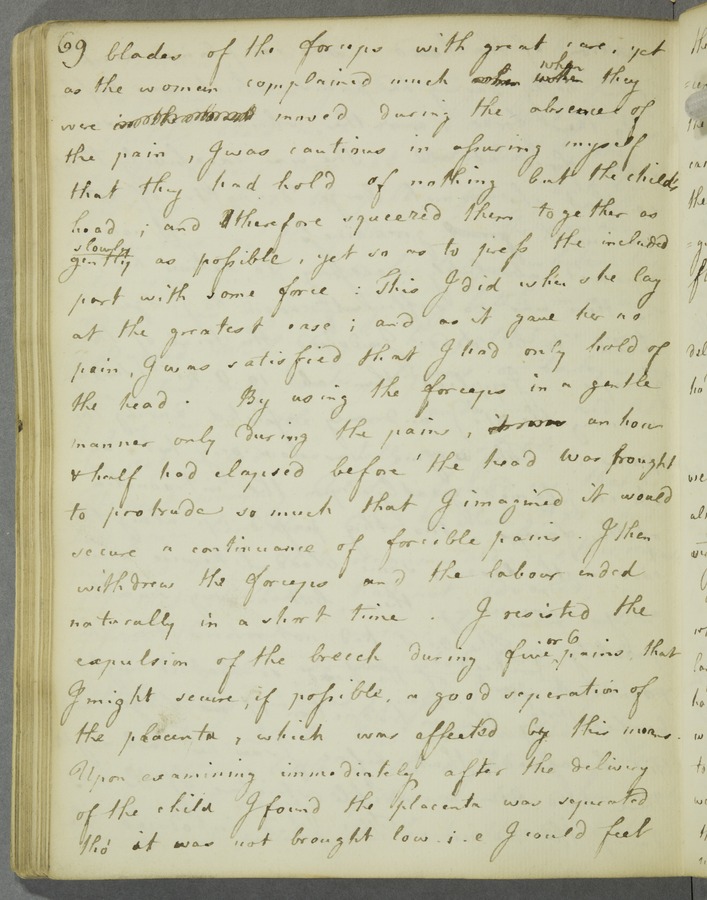 69 blades of the forceps with great care, yet
as the woman complained much when they
were moved during the absence of
the pain, I was cautious in assuring myself
that they had hold of nothing but the childs
head; and I therefore squeezed them together as
slowly
gently as possible, yet so as to press the included
part with some force: This I did when she lay
at the greatest ease; and as it gave her no
pain, I was satisfied that I had only hold of
the head. By using the forceps in a gentle
manner only during the pains, an hour
& half had elapsed before the head was brought
to protrude so much that I imagined it would
secure a continuance of forcible pains. I then
withdrew the forceps and the labour ended
naturally in a short time. I resisted the
expulsion of the breech during five or 6 pains that
I might secure, if possible, a good seperation of
the placenta, which was affected by this means.
Upon examining immediately after the delivery
of the child I found the placenta was seperated
tho' it was not brought low. i.e I could feel